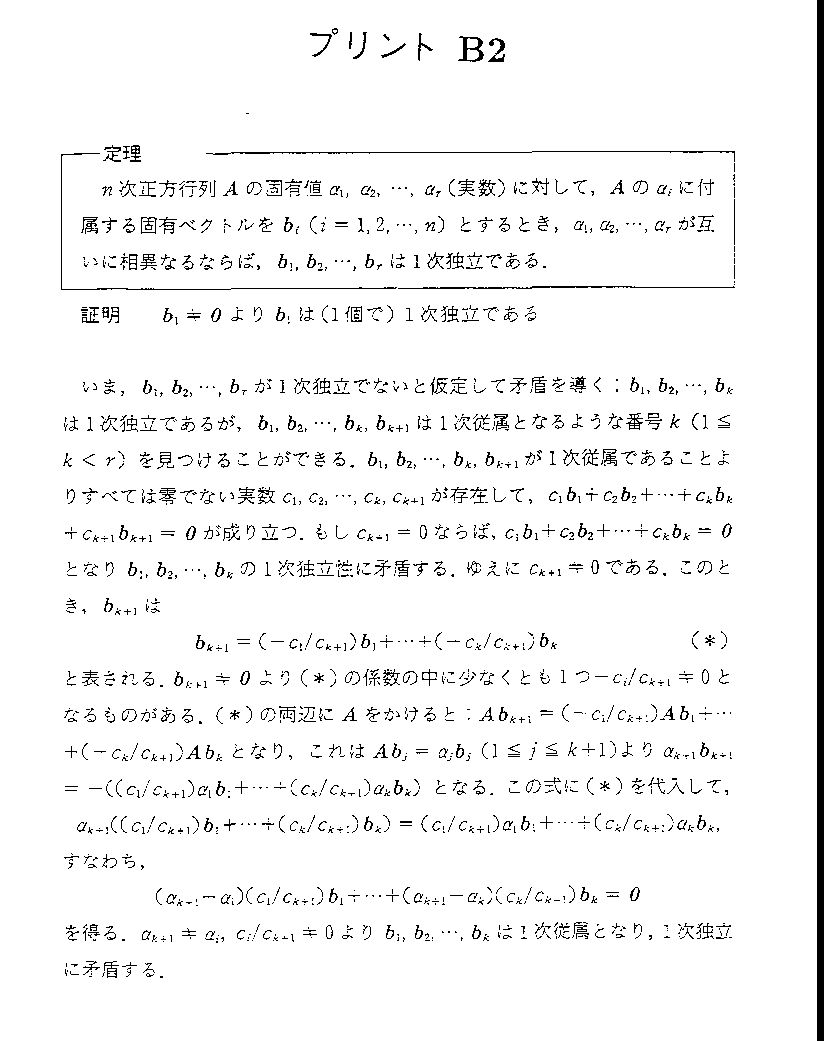 プリント B2
定理
n 次正方行列 A の固有値 α₁, α₂, …, αᵣ (実数) に対して, A の αᵢ に付
属する固有ベクトルを bᵢ (i = 1, 2, …, n) とするとき, α₁, α₂, …, αᵣ が互
いに相異なるならば, b₁, b₂, …, bᵣ は1次独立である.
証明 b₁ ≠ 0 より b₁ は (1個で) 1次独立である
いま, b₁, b₂, …, bᵣ が1次独立でないと仮定して矛盾を導く：b₁, b₂, …, bₖ
は1次独立であるが, b₁, b₂, …, bₖ, bₖ₊₁ は1次従属となるような番号 k (1 ≦
k < r) を見つけることができる. b₁, b₂, …, bₖ, bₖ₊₁ が1次従属であることよ
りすべては零でない実数 c₁, c₂, …, cₖ, cₖ₊₁ が存在して, c₁b₁+c₂b₂+…+cₖbₖ
+cₖ₊₁bₖ₊₁ = 0 が成り立つ. もし cₖ₊₁ = 0 ならば, c₁b₁+c₂b₂+…+cₖbₖ = 0
となり b₁, b₂, …, bₖ の1次独立性に矛盾する. ゆえに cₖ₊₁ ≠ 0 である. このと
き, bₖ₊₁ は
bₖ₊₁ = (−c₁/cₖ₊₁)b₁+…+(−cₖ/cₖ₊₁)bₖ (*)
と表される. bₖ₊₁ ≠ 0 より (*) の係数の中に少なくとも1つ −cᵢ/cₖ₊₁ ≠ 0 と
なるものがある. (*) の両辺に A をかけると：Abₖ₊₁ = (−c₁/cₖ₊₁)Ab₁+…
+(−cₖ/cₖ₊₁)Abₖ となり, これは Abⱼ = αⱼbⱼ (1 ≦ j ≦ k+1) より αₖ₊₁bₖ₊₁
= −((c₁/cₖ₊₁)α₁b₁+…+(cₖ/cₖ₊₁)αₖbₖ) となる. この式に (*) を代入して,
αₖ₊₁((c₁/cₖ₊₁)b₁+…+(cₖ/cₖ₊₁)bₖ) = (c₁/cₖ₊₁)α₁b₁+…+(cₖ/cₖ₊₁)αₖbₖ,
すなわち,
(αₖ₊₁−α₁)(c₁/cₖ₊₁)b₁+…+(αₖ₊₁−αₖ)(cₖ/cₖ₊₁)bₖ = 0
を得る. αₖ₊₁ ≠ αᵢ, cᵢ/cₖ₊₁ ≠ 0 より b₁, b₂, …, bₖ は1次従属となり, 1次独立
に矛盾する.